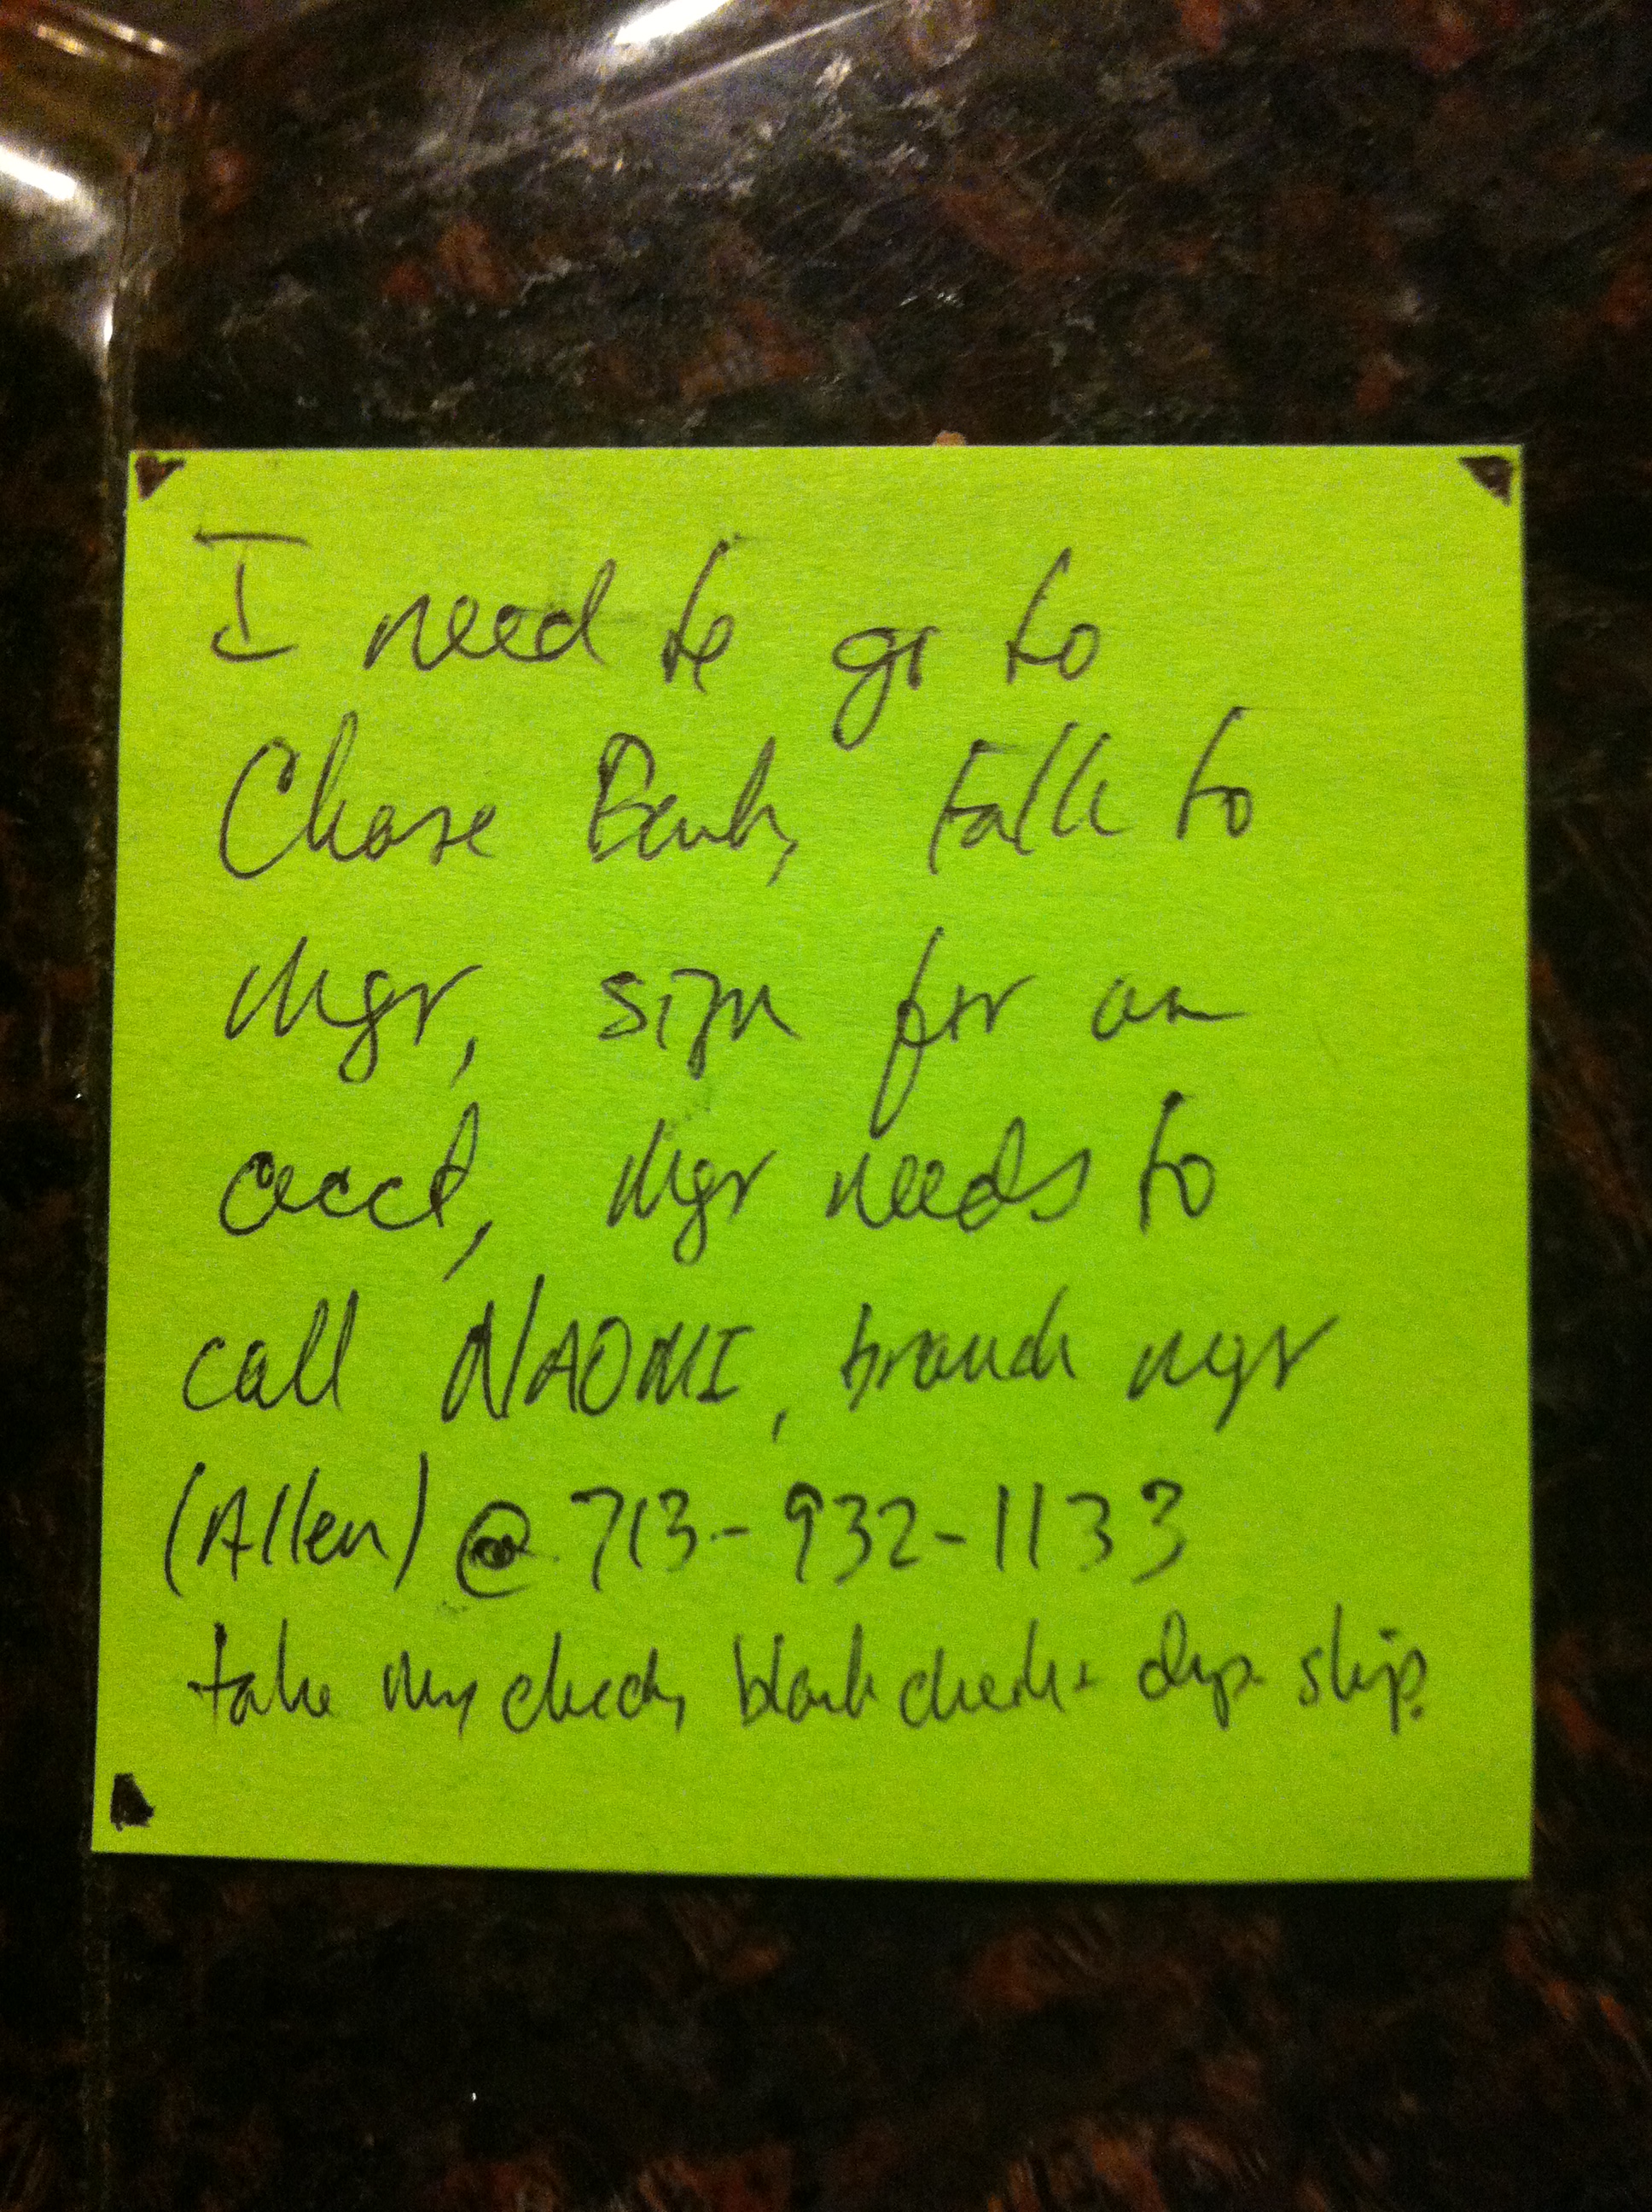 I need to go to
Chase Bank, talk to
Mgr, sign for an
acct, Mgr needs to
call NAOMI, branch mgr
(Allen) @ 713-932-1133
take my check, blank check + slip.